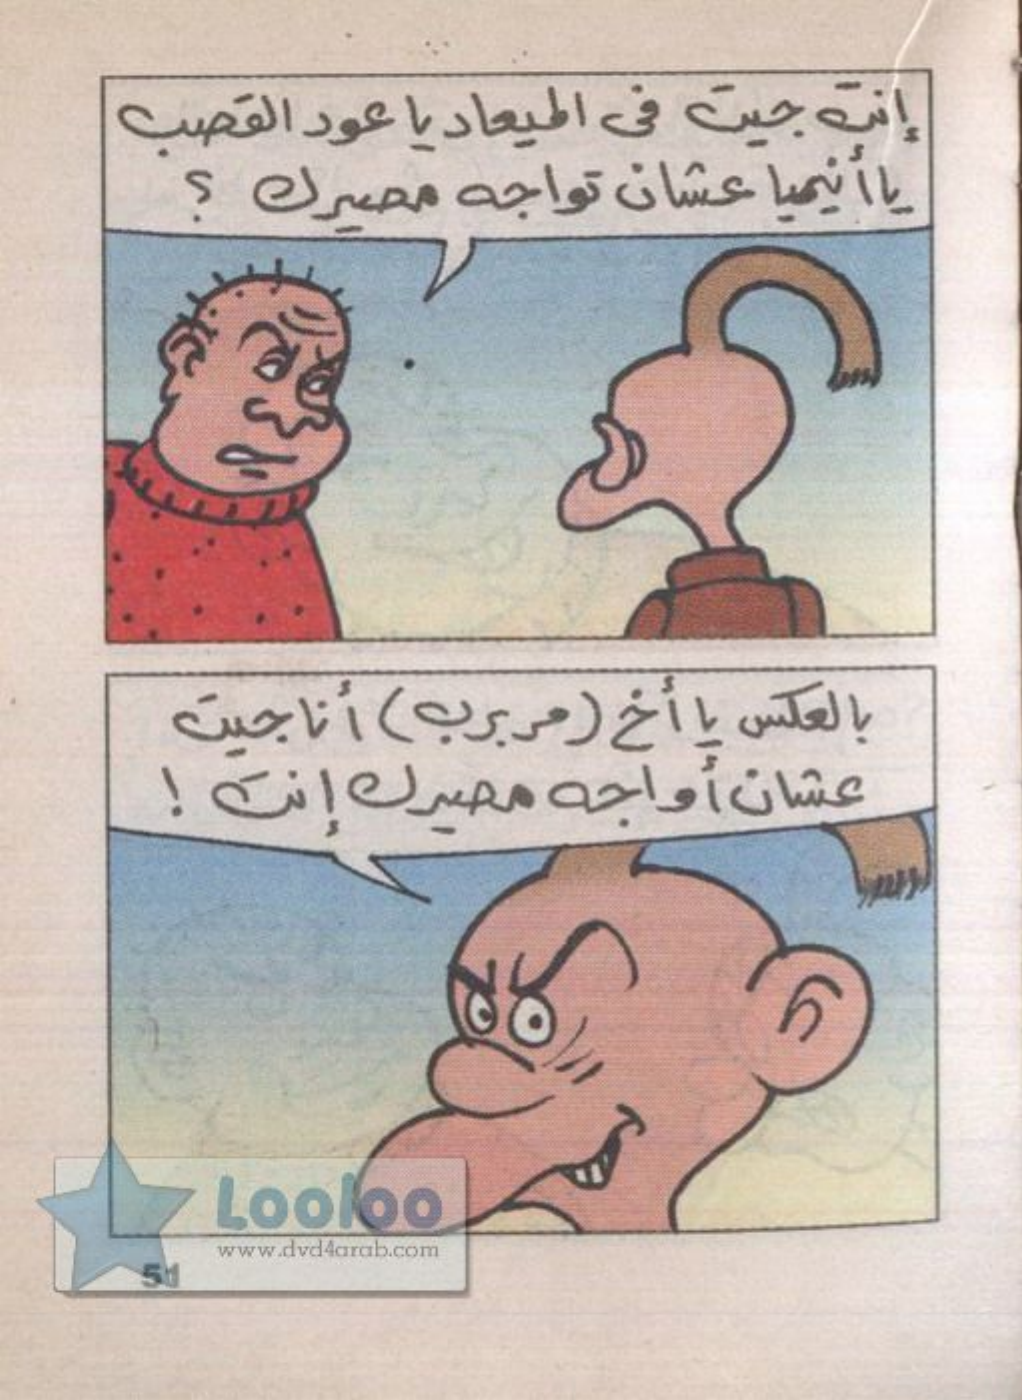 إنت جيت فى الميعاد يا عود القصب
يا أنيميا عشان تواجه مصيرك ؟
بالعكس يا أخ (مربرب) أنا جيت
عشان أواجه مصيرك إنت !
Looloo
www.dvd4arab.com
51